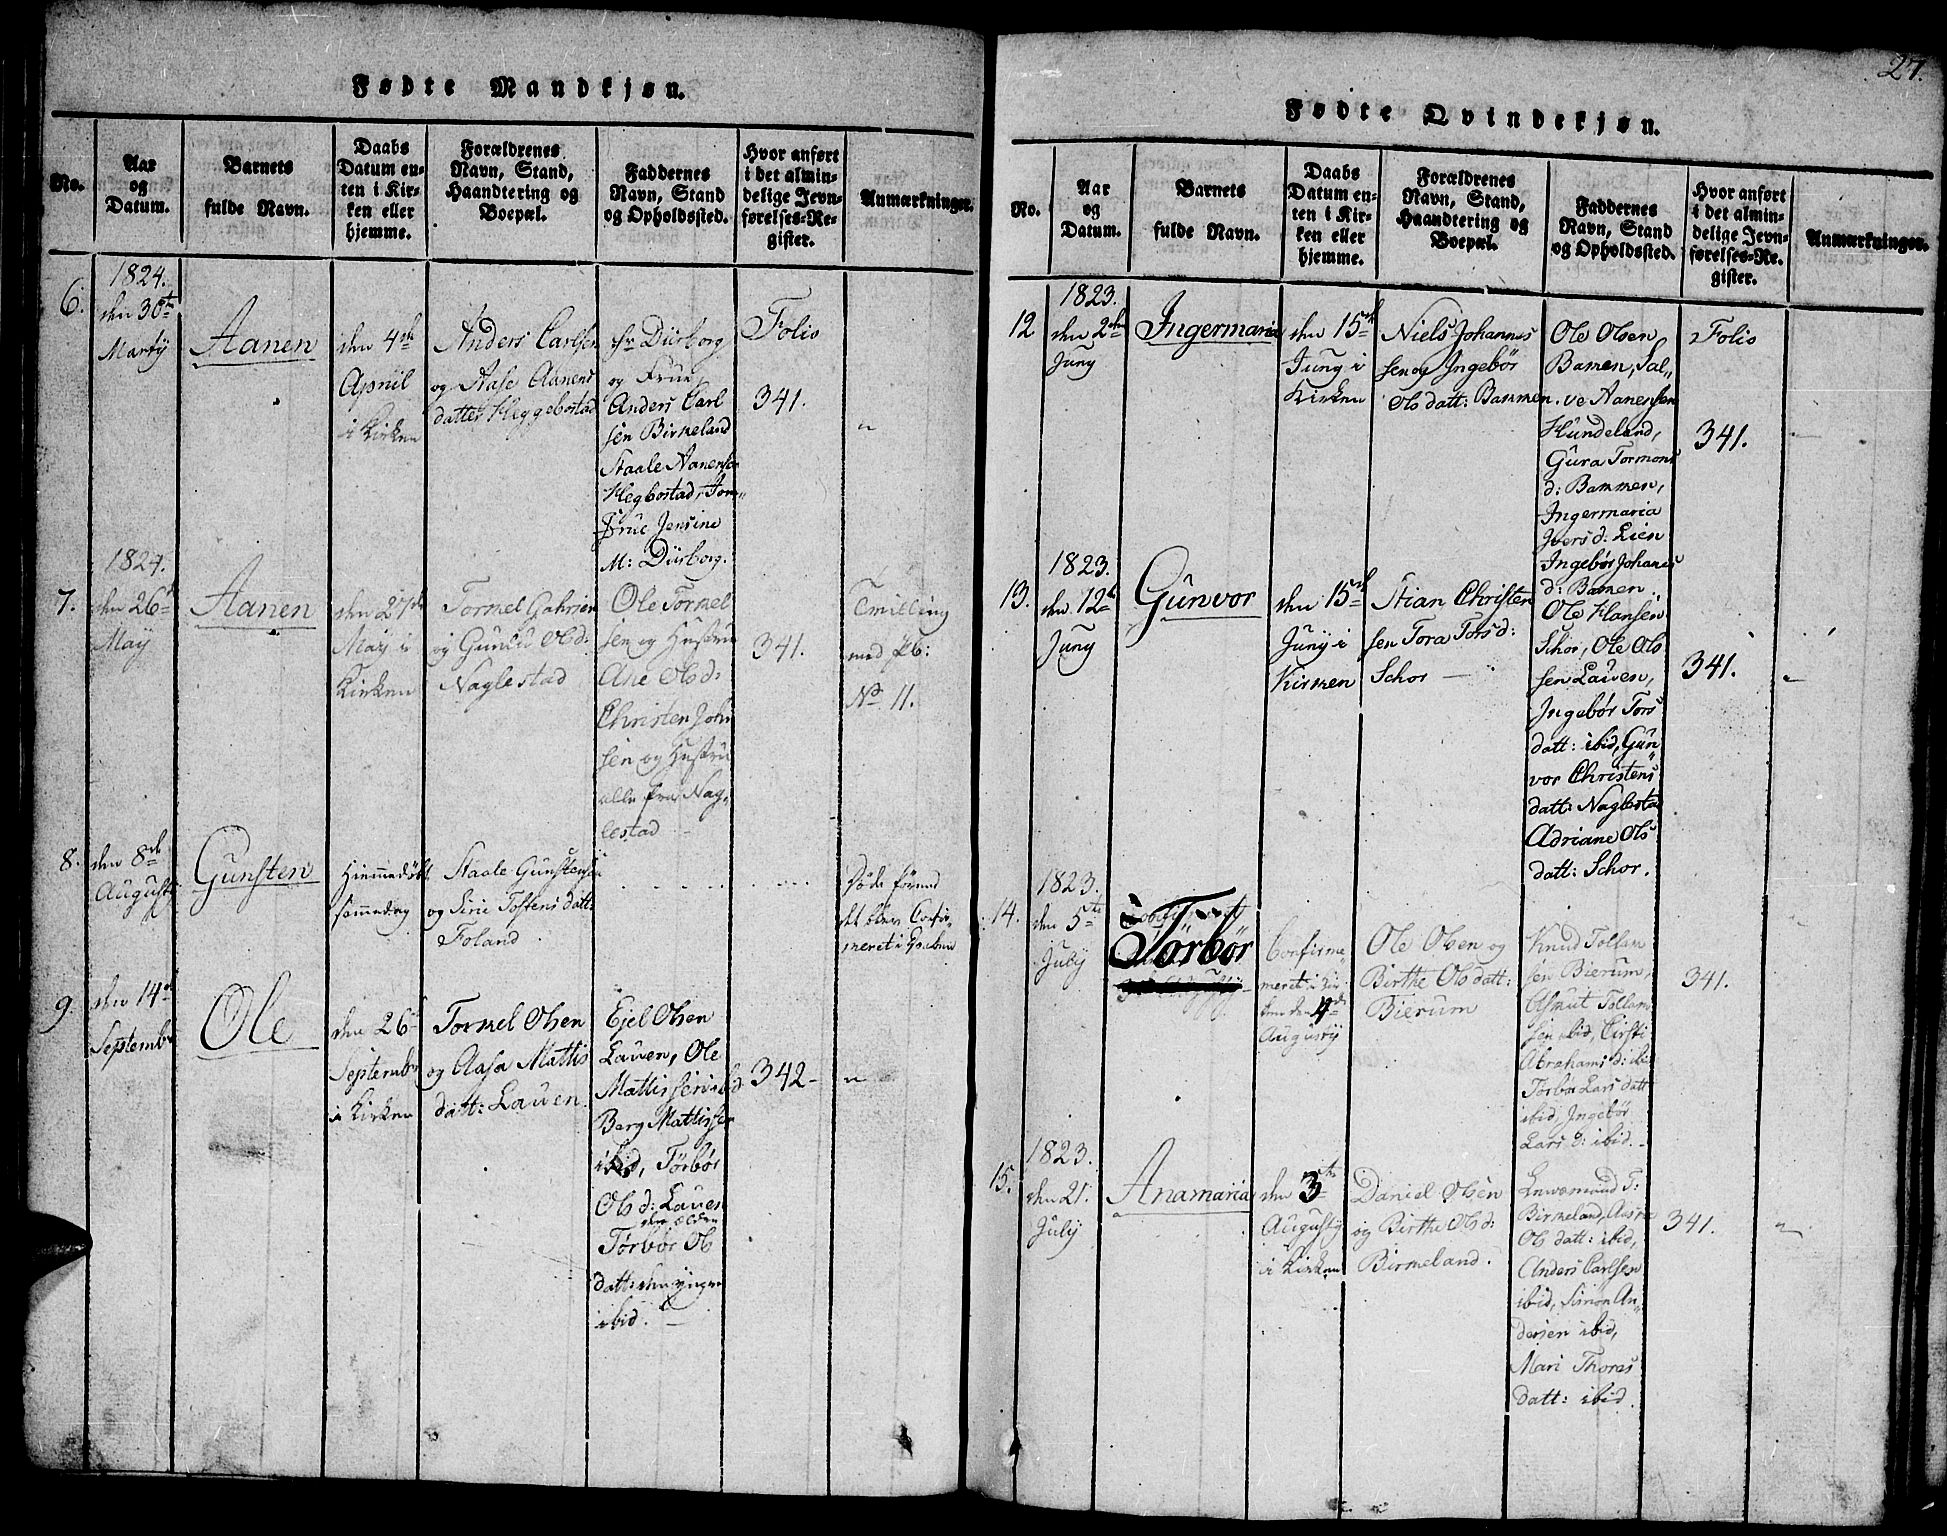 Fødte Mandkjøn.
No.
Aar
og
Datum.
Barnets
fulde Navn.
Daabs
Datum en-
ten i Kir-
ken eller
hjemme.
Forældrenes
Navn, Stand,
Haandtering og
Boepæl.
Faddernes
Navn, Stand
og Opholdssted.
Hvor anført
i det almin-
delige Jevn-
førelses-Re-
gister.
Anmærkninger.
6.
1824.
den 30te
Martÿ
Aanen
den 4de
Apriil
i Kirken
Anders Carlsen
og Aase Aanens
datter Heggebostad
Hr Dürborg
og Frue
Anders Carl
sen Birkeland
Staale Aanensen
Hegbostad, Jom„
Frue Jensine
M: Dürborg.
Folio
341.
"
7.
1824.
den 26d
Maÿ
Aanen
den 27de
Maÿ i
Kirken
Tormel Gabriels
og Gunild Ols d:
Naglestad
Ole Tormel
sen og Hustru
Ane Ols d:
Christen John
sen og Hustru
alle fra Nag„
lestad
341.
Tvilling
med Pb:
No 11.
8.
den 8de
Augusti
Gunsten
Hiemmedøbt
samme dag
Staale Gunstensen
og Sirie Tostens datt:
Foland.
døde førend
det blev Confir„
meret i Kirken
9.
den 14de
Septembr
Ole
den 26d
Septembr
i Kirken
Tormel Olsen
og Aasa Mattis
datt: Lauen
Ejel Olsen
Lauen, Ole
Mattissen ibid
Berg Mattissen
ibid, Törbör
Ols d: Lauen
den ælden
Törbör Ols
datt: den yngre
ibid.
342-
"
27.
Fødte Qvindekjøn.
No.
Aar
og
Datum.
Barnets
fulde Navn.
Daabs
Datum en-
ten i Kir-
ken eller
hjemme.
Forældrenes
Navn, Stand,
Haandtering og
Boepæl.
Faddernes
Navn, Stand
og Opholdssted.
Hvor anført
i det almin-
delige Jevn-
førelses-Re-
gister.
Anmærkninger.
12
1823.
den 2den
Juny
Ingermaria
den 15de
Juny i
Kirken
Niels Johannes
sen og Ingebör
Ols datt: Bammen.
Ole Olsen
Bamen, Sal„
ve Aanensen
Hundeland,
Gura Tormons
d: Bammen,
Ingermaria
Ivers d: Lien
Ingebör Johanes
d: Bamen
Folio
341.
13.
1823.
den 12te
Juny
Gunvor
den 15de
Juny i
Kirken
Stian Christen
sen Tora Tors d:
Schor
Ole Hansen
Schor, Ole Ols
sen Lauen,
Ingebör Tors
datt: ibid, Gun„
vor Christens
datt: Naglestad
Adriane Ols
datt: Schor.
341.
14.
1823.
den 5te
July
Törbör
Confirme„
meret i Kir
ken den 4de
Augusty
Ole Olsen og
Birthe Ols datt:
Bierum
Knud Tollam
sen Bierum,
Asmut Tollam
sen ibid, Kirsti
Abrahams d: ibid
Törbör Lars datt
ibid, Ingebör
Lars d: ibid.
341.
15.
1823.
den 21.
July
Anamaria
den 3te
Augusty
i Kirken
Daniel Olsen
og Birthe Ols d:
Birkeland.
Birkeland,
Ols datt: ibid,
Anders Carlsen
ibid, Simon An„
dersen ibid,
Mari Thores
datt: ibid.
341.
"